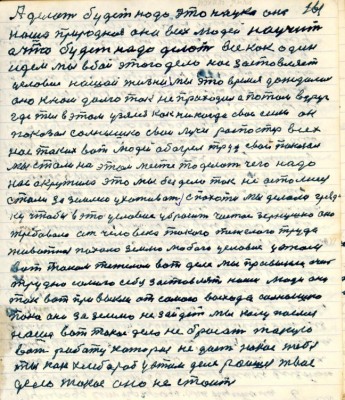 А делать будет надо, это наука она 161
наша природная она всех людей научит
а что будет надо делать все как один
идем мы в бой этого дело нас заставляет
условие нашей жизни мы это время дожидали
оно к нам долго так не приходил а потом вдруг
где ты в этом узялся как никогда свои силы он
показал солнышко свои лучи распостер всех
нас таких вот людей обогрел труд свой показал
мы стали на этом месте то делать чего надо
нас окружило это мы без дело так не остались
стали за землею ухаживать с пахоты мы делали гряд-
ку чтобы в это условие убросить чистое зернушко оно
требовало от человека такого тяжелого труда
животным пахало землю любого условия
вот таком тяжелом вот деле мы привыкли
трудно самого себя заставлять наши люди они
так вот привыкли от самого восхода солнышко
пока оно за землю не зайдет мы
наше вот такое дело не бросать такую
вот работу которая не дает покоя тебе
ты как хлебороб у этим деле твое
дело такое оно не стоит